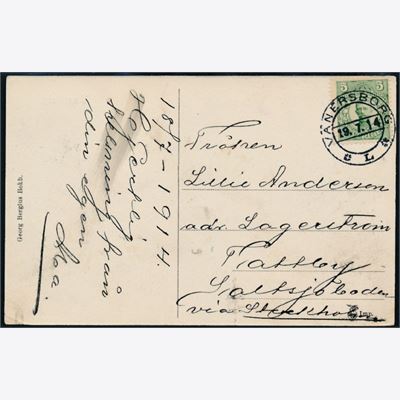 18/7-1914.
Hjertlig
hälsning från
din egen
Georg Bergius Bokh.
5
VÄNERSBORG
19.7.14
L
Fröken
Lillie Andersen
adr. Lagerström
Tattby
Saltsjöbaden
via Stockholm
Imp.